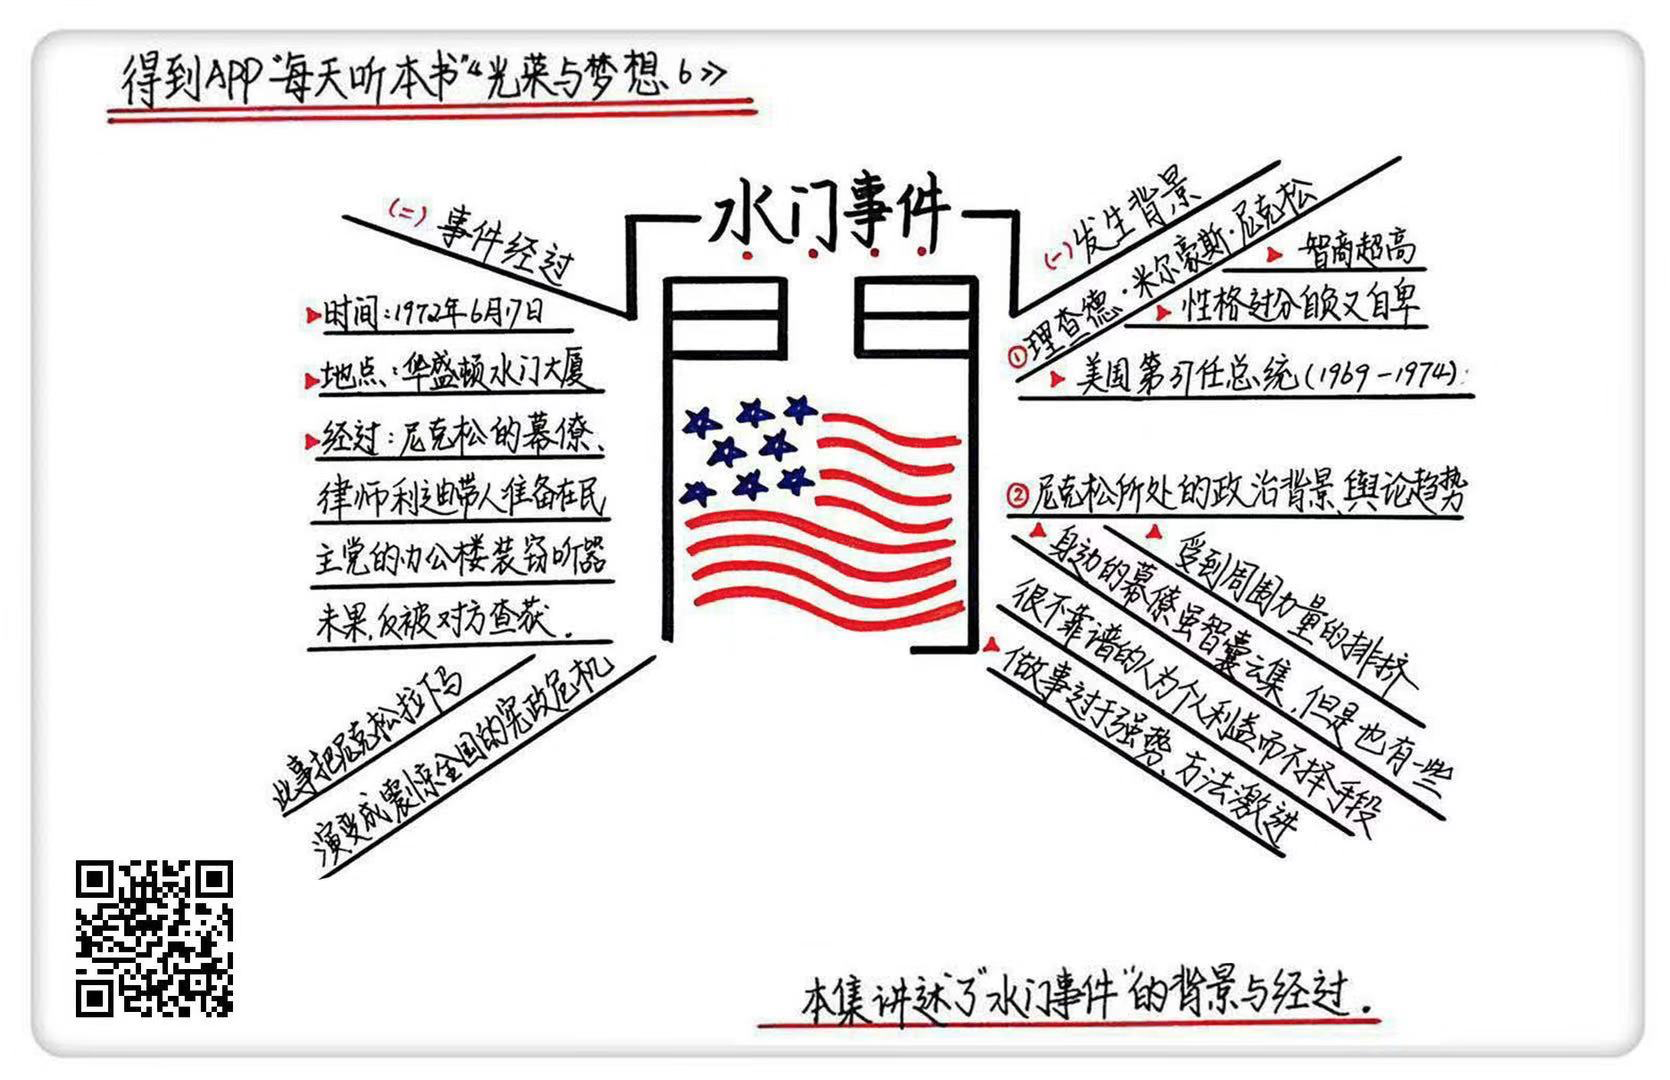 得到APP“每天听本书”《光荣与梦想6》
水门事件
(一)发生背景
①理查德·米尔豪斯·尼克松
智商超高
性格过分自负又自卑
美国第37任总统(1969-1974)
②尼克松所处的政治背景、舆论趋势
受到周围力量的排挤
身边的幕僚虽智囊云集,但是也有一些
很不靠谱的人为个人利益而不择手段
做事过于强势、方法激进
(二)事件经过
时间:1972年6月17日
地点:华盛顿水门大厦
经过:尼克松的幕僚、
律师利迪带人准备在民
主党的办公楼装窃听器
未果,反被对方查获.
此事把尼克松拉下马
演变成震惊全国的宪政危机
本集讲述了“水门事件”的背景与经过.